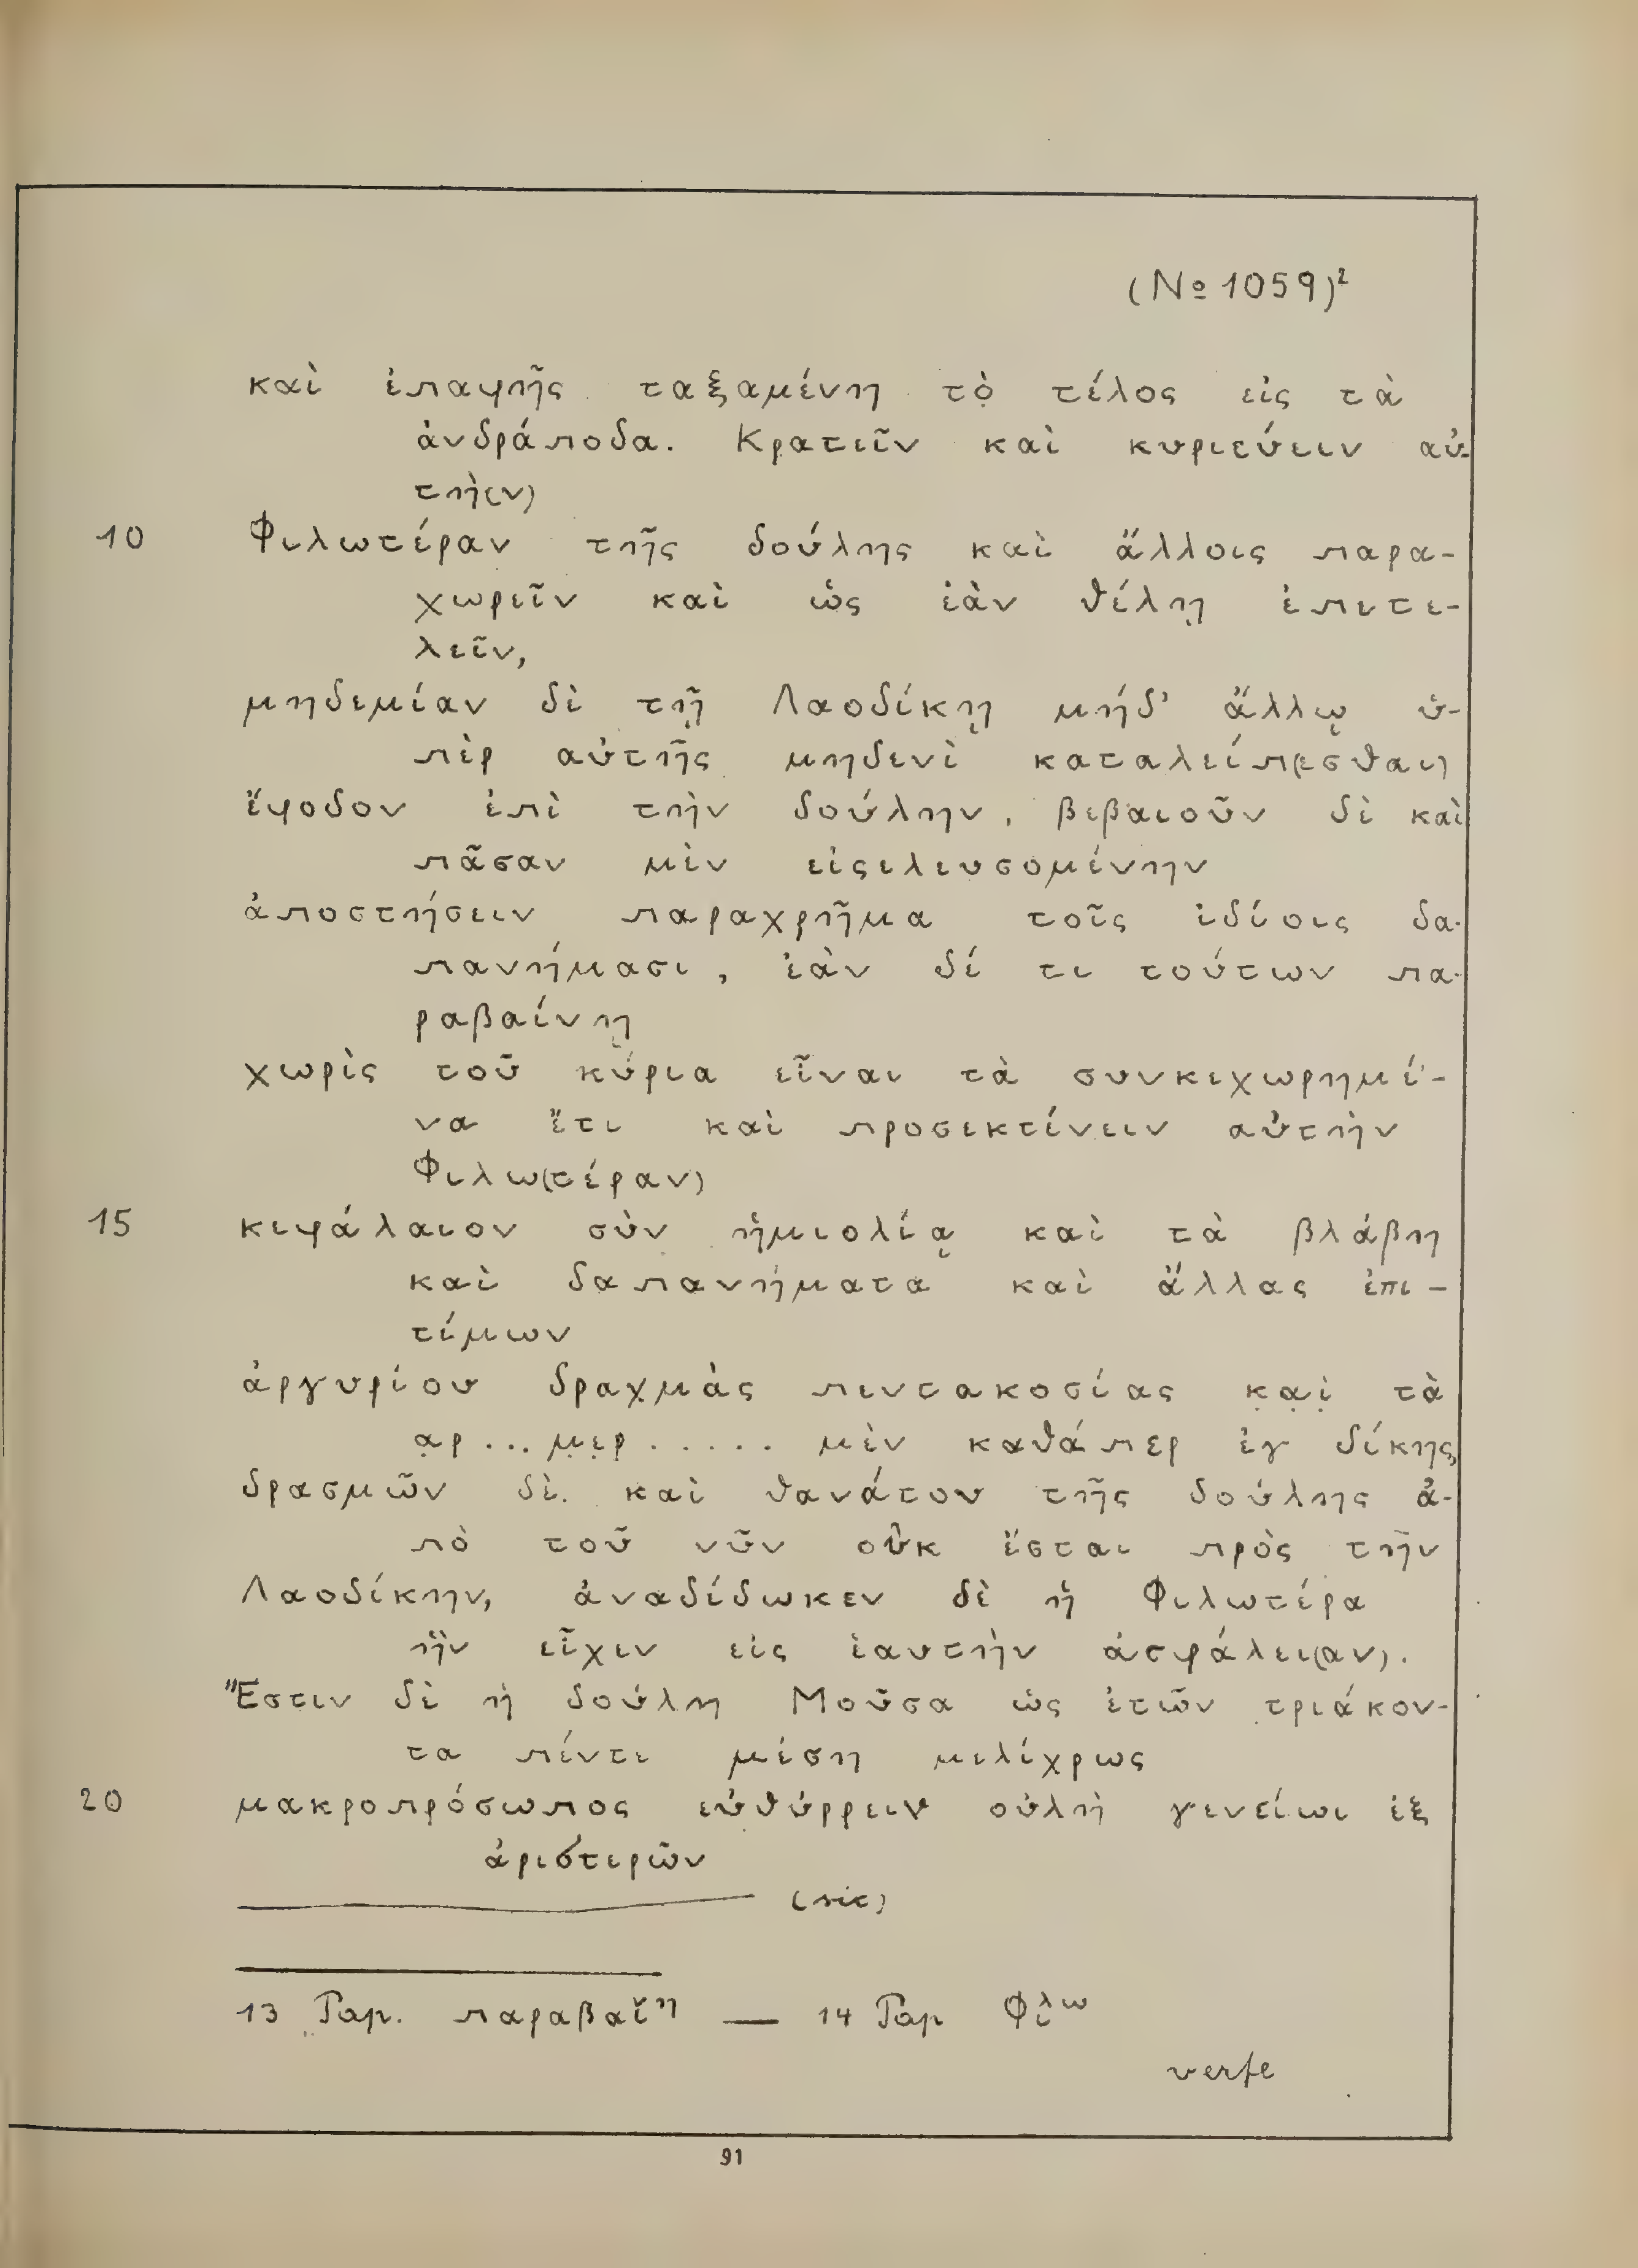 (No 1059)²
καὶ ἐπαφῆς ταξαμένη τὸ̣ τέλος εἰς τὰ
ἀνδράποδα. Κρατεῖν καὶ κυριεύειν αὐ-
τὴ(ν)
10 Φιλωτέραν τῆς δούλης καὶ ἄλλοις παρα-
χωρεῖν καὶ ὡς ἐὰν θέλῃ ἐπιτε-
λεῖν,
μηδεμίαν δὲ τῇ Λαοδίκῃ μήδ' ἄλλῳ ὑ-
πὲρ αὐτῆς μηδενὶ καταλείπ(εσθαι)
ἔφοδον ἐπὶ τὴν δούλην, βεβαιοῦν δὲ καὶ
πᾶσαν μὲν εἰςελευσομένην
ἀποστήσειν παραχρῆμα τοῖς ἰδίοις δα-
πανήμασι, ἐὰν δέ τι τούτων πα-
ραβαίνῃ
χωρὶς τοῦ κύρια εἶναι τὰ συνκεχωρημέ-
να ἔτι καὶ προσεκτίνειν αὐτὴν
Φιλω(τέραν)
15 κεφάλαιον σὺν ἡμιολίᾳ καὶ τὰ βλάβη
καὶ δαπανήματα καὶ ἄλλας ἐπι-
τίμων
ἀργυρίου δραχμὰς πεντακοσίας κ̣α̣ὶ̣ τὰ
α̣ρ ... μ̣ε̣ρ̣ ..... μὲν καθάπερ ἐγ δίκης
δρασμῶν δὲ. καὶ θανάτου τῆς δούλης ἀ-
πὸ τοῦ νῦν οὐκ ἔσται πρὸς τὴν
Λαοδίκην, ἀναδίδωκεν δὲ ἡ Φιλωτέρα
ἣν εἶχεν εἰς ἑαυτὴν ἀσφάλει(αν).
Ἔστιν δὲ ἡ δούλη Μοῦσα ὡς ἐτῶν τριάκον-
τα πέντε μέση μελίχρως
20 μακροπρόσωπος εὐθύρρειν οὐλὴ γενείωι ἐξ
ἀριστερῶν
(sic)
13 Pap. παραβαἴη — 14 Pap Φιλω
verte
91